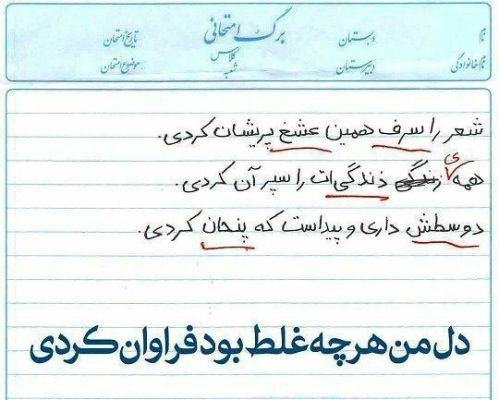 برگ امتحانی
نام دبستان کلاس تاریخ امتحان
نام خانوادگی دبیرستان شعبه موضوع امتحان
شعر را سرف همین عشغ پریشان کردی.
همه ی ذندگی‌ات را سپر آن کردی.
دوسطش داری و پیداست که پنحان کردی.
دل من هرچه غلط بود فراوان کردی